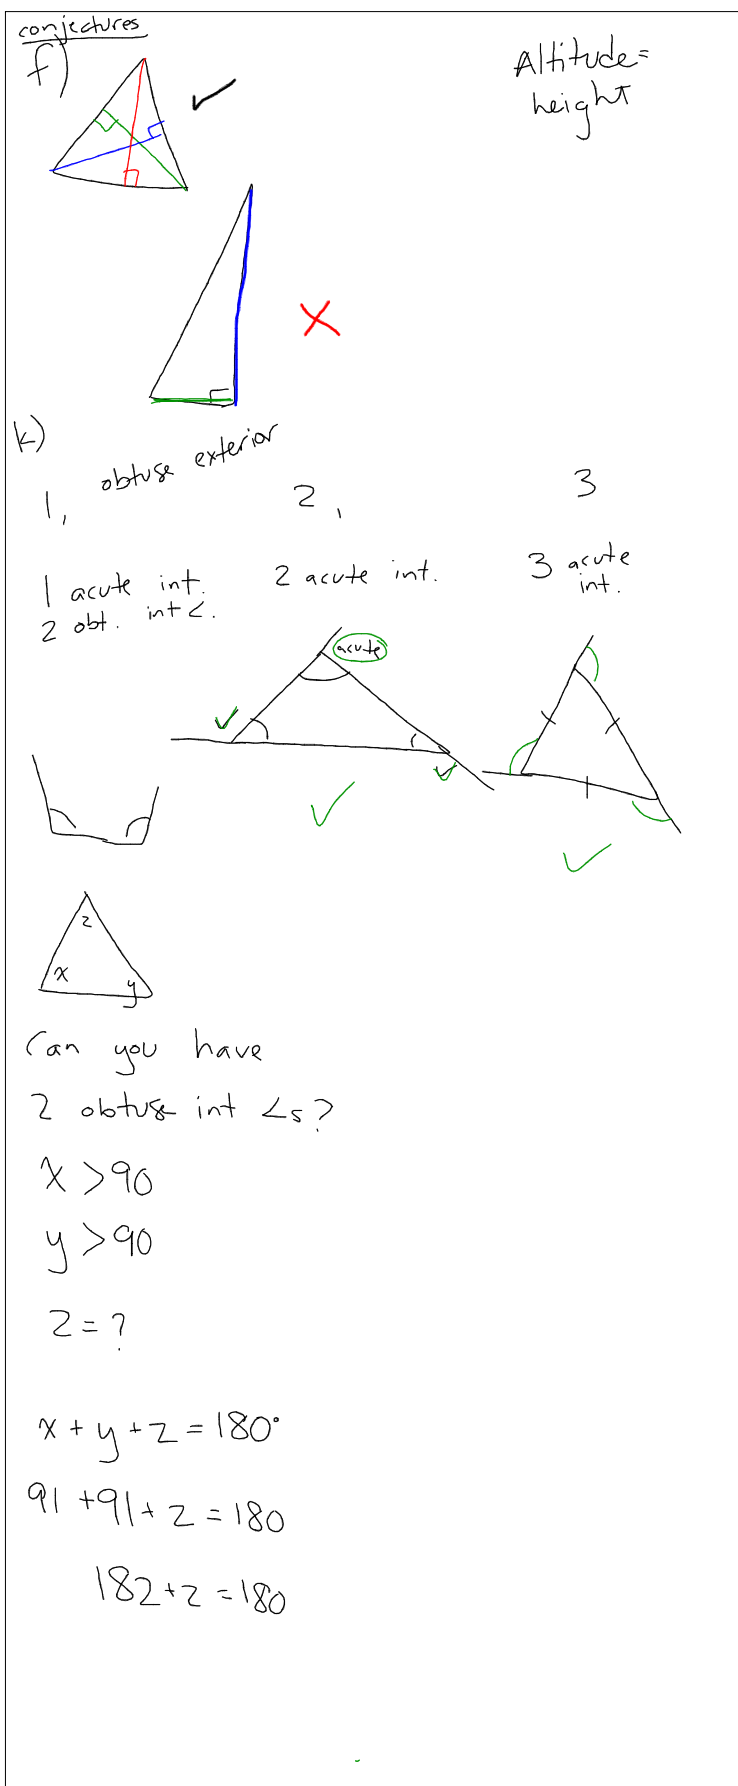 conjectures
f)
Altitude =
height
k)
obtuse exterior
1,
2,
3
1 acute int.
2 obt. int <.
2 acute int.
3 acute
int.
acute
z
x
y
Can you have
2 obtuse int <s?
x > 90
y > 90
z = ?
x + y + z = 180°
91 + 91 + z = 180
182 + z = 180